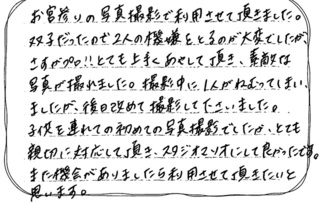 お宮参りの写真撮影で利用させて頂きました。
双子だったので2人の機嫌をとるのが大変でしたが、
さすがプロ!!とても上手くあやして頂き、素敵な
写真が撮れました。撮影中に1人がねむってしまい
ましたが、後日改めて撮影して下さいました。
子供を連れての初めての写真撮影でしたが、とても
親切に対応して頂き、スタジオマリオにして良かったです。
また機会がありましたら利用させて頂きたいと
思います。